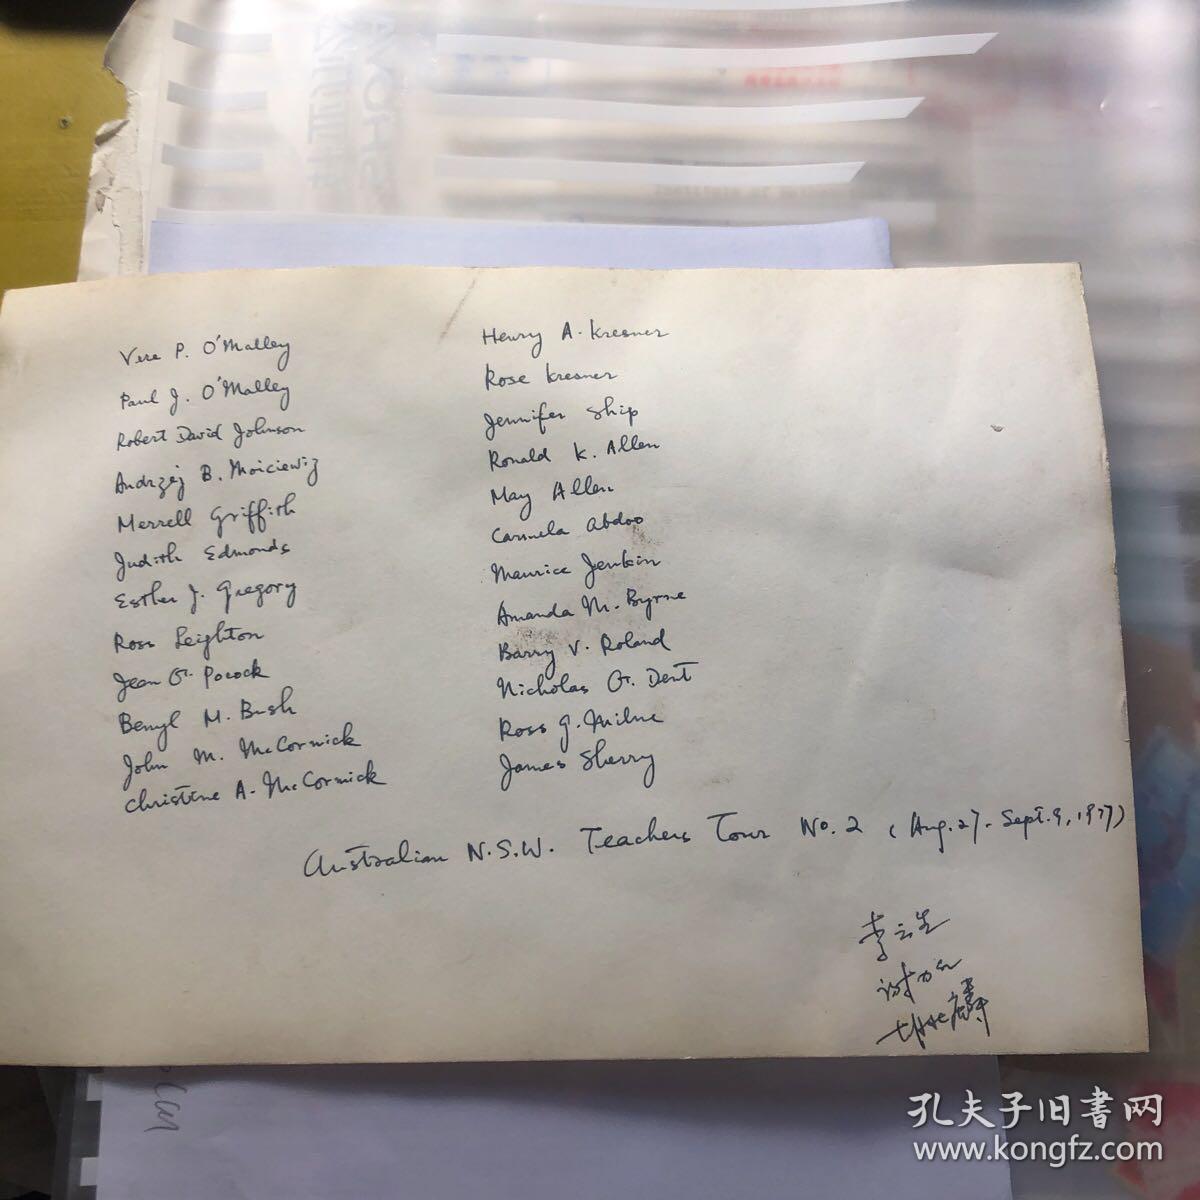 Vera P. O'Malley
Paul J. O'Malley
Robert David Johnson
Andrzej B. Moiciewiz
Merrell Griffith
Judith Edmonds
Esther J. Gregory
Ross Leighton
Jean G. Pocock
Beryl M. Bush
John M. McCormick
Christine A. McCormick
Henry A. Kresner
Rose Kresner
Jennifer Ship
Ronald K. Allen
May Allen
Carmela Abdoo
Maurice Jenkin
Amanda M. Byrne
Barry V. Roland
Nicholas G. Dent
Ross G. Milne
James Sherry
Australian N.S.W. Teachers Tour No. 2 (Aug. 27 - Sept. 9, 1977)
李云生
孔夫子旧書网
www.kongfz.com